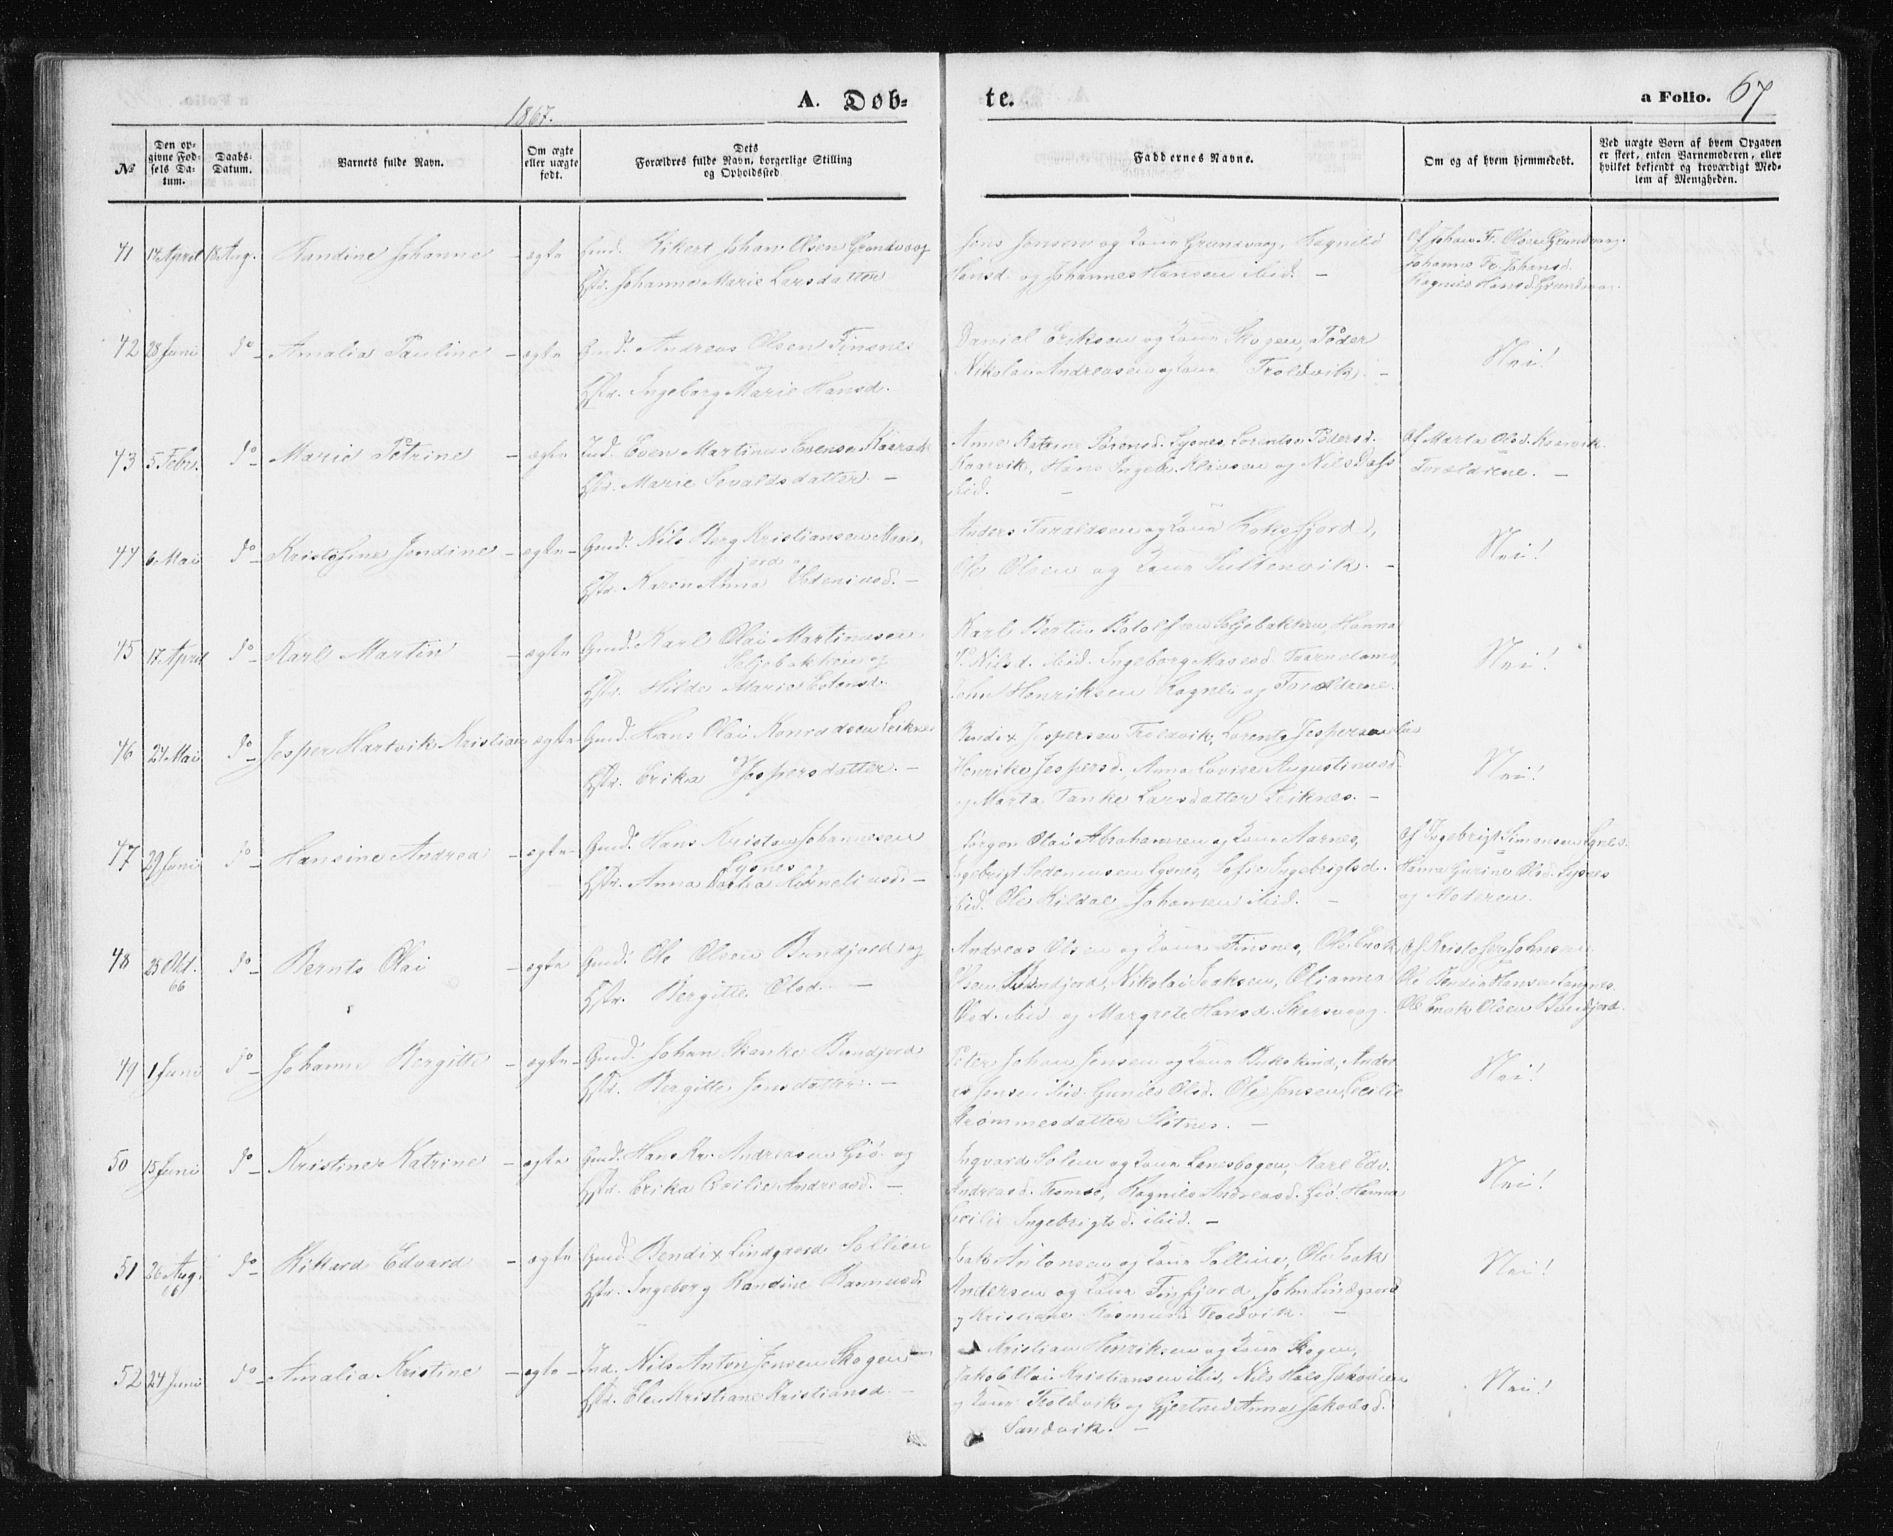 1867.
A. Døb-
te.
a Folio. 67
№
Den op-
givne Fød-
sels Da-
tum.
Daabs-
Datum.
Barnets fulde Navn.
Om ægte
eller uægte
født.
Dets
Forældres fulde Navn, borgerlige Stilling
og Opholdssted
Faddernes Navne.
Om og af hvem hjemmedøbt.
Ved uægte Børn af hvem Opgaven
er skeet, enten Barnemoderen, eller
hvilket bekjendt og troværdigt Med-
lem af Menigheden.
41 17 April 18 Aug. Nandine Johanne - ægte Gmd. Rikert Johan Olsen Grundvaag
Hstr. Johanna Marie Larsdatter
Jens Jensen og Kone Grundvaag, Ragnild
Hansd. og Johannes Hansen ibid. -
Af Johan Fr. Olsen Grundvaag.
Johanna Fr. Johansd.
Ragnild Hansd. Grundvaag.
42 28 Juni do - Amalia Pauline - ægte Gmd. Andreas Olsen Finsnes
og
Hstr. Ingeborg Marie Hansd.
Daniel Eriksen og Kone Skogen, Peder
Nikolai Andreasen og Kone Troldvik. -
Nei!
43 5 Febr. do - Marie Petrine - ægte Ind. Even Martinus Evensen Kaarvik
Hstr. Marie Sevaldsdatter. -
Anne Katrine Sørensd. Lysnes, Lorents Pedersd.
Kaarvik, Hans Ingebr. Klausen og Nils Dass
ibid. -
Af Marta Olsd. Kaarvik.
Forældrene. -
44 6 Mai do - Kristofine Jendine - ægte - Gmd. Nils Berg Kristiansen
jord og
Hstr. Karen Anna Edeniusd. -
Anders Taraldsen og Kone Eidsfjord,
Ole Olsen og Kone Sultenvik. -
Nei!
45 17 April do - Karl Martin - ægte Gmd. Karl Olai Martinusen
Seljebakken og
Hstr. Hilda Marie Estensd.
Karl Bertin Botolfsen Seljebakken, Hanna
P. Nilsd. ibid. Ingeborg Masesd. Taarnelame,
John Henriksen Rognli og Forældrene.
Nei!
46 24 Mai do - Jesper Hartvik Kristian - ægte - Gmd. Hans Olai Konradsen Leiknes
Hstr. Erika Jespersdatter. -
Bendix Jespersen Troldvik, Lorents Jespersen
Henrike Jespersd. Anna Lovise Augustinusd.
og Marta Tanke Larsdatter Leiknes. -
Nei!
47 29 Juni do - Hansine Andrea - ægte - Gmd. Hans Kristen Johannesen
Lysnes og
Hstr. Anna Dortea Korneliusd. -
Jørgen Olai Abrahamsen og Kone Aarnes,
Ingebrigt Sedeniusen Lysnes, Sofie Ingebrigtsd.
ibid. Ole Kildal Johansen ibid. -
Af Ingebrigt Simonsen Lysnes.
Hanna Gurine Olsd. Lysnes
og Moderen.
48 25 Okt. do - Bernts Olai - ægte Gmd. Ole Olsen Bundjord og
66
Hstr. Bergitte Olsd. -
Andreas Olsen og Kone Finsnes, Ole Enok
Olsen Bundjord, Nikolai Isaksen, Olianna
Olsd. ibid. og Margrete Hansd. Skarsvaag.
Af Kristofer Johnsen
Ole Bendix Hansen Langnes.
Ole Enok Olsen Bundjord.
49 1 Juni do - Johanne Bergitte - ægte - Gmd. Johan Skanke Bundjord
Hstr. Bergitte Jensdatter. -
Peter Johan Jensen og Kone Bukskind, Andre-
as Jensen ibid. Gunild Olsd. Ole Jensen, Cecilie
Krommesdatter Slotnes. -
Nei!
50 15 Juni do - Kristine Katrine - ægte Gmd. Hans Kr. Andreasen Giø. og
Hstr. Erika Cecilie Andreasd. -
Ingvard Solem og Kone Lenesbogen, Karl Edv.
Andreasd. Tromsø, Ragnild Andreasd. Giø. Hanna
Cecilie Ingebrigtsd. ibid. -
Nei!
51 26 Aug. do - Rikard Edvard - ægte Gmd. Bendix Lindgaard Sollien
66
Hstr. Ingeborg Nandine Rasmusd.
Isak Antonsen og Kone Sollien, Ole Isak
Andersen og Kone Finfjord, John Lindgaard
og Kristiane Rasmusd. Troldvik. -
Nei!
52 24 Juni do - Amalia Kristine - ægte - Ind. Nils Anton Jensen Skogen
Hstr. Elen Kristiane Kristiansd. -
Kristian Henriksen og Kone Skogen,
Jakob Olai Kristiansen ibid, Nils Hals Jakobsen
og Kone Troldvik og Gjertrud Anna Jakobsd.
Sandvik. -
Nei!